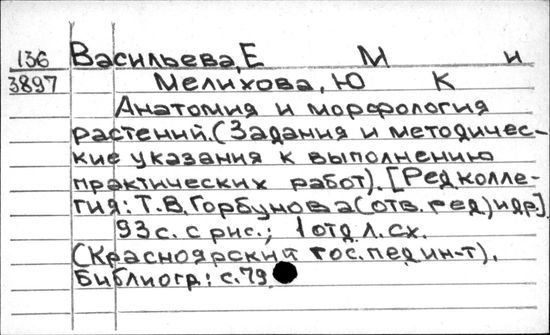 136 Васильева, Е М и
3897 Мелихова, Ю К
Анатомия и морфология
растений. (Задания и методичес-
кие указания к выполнению
практических работ). [Редколле-
гия: Т.В.Горбунова (отв. ред) и др.]
93 с. с рис.; 1 отд. л. сх.
(Красноярский гос. пед ин-т).
Библиогр: с. 79